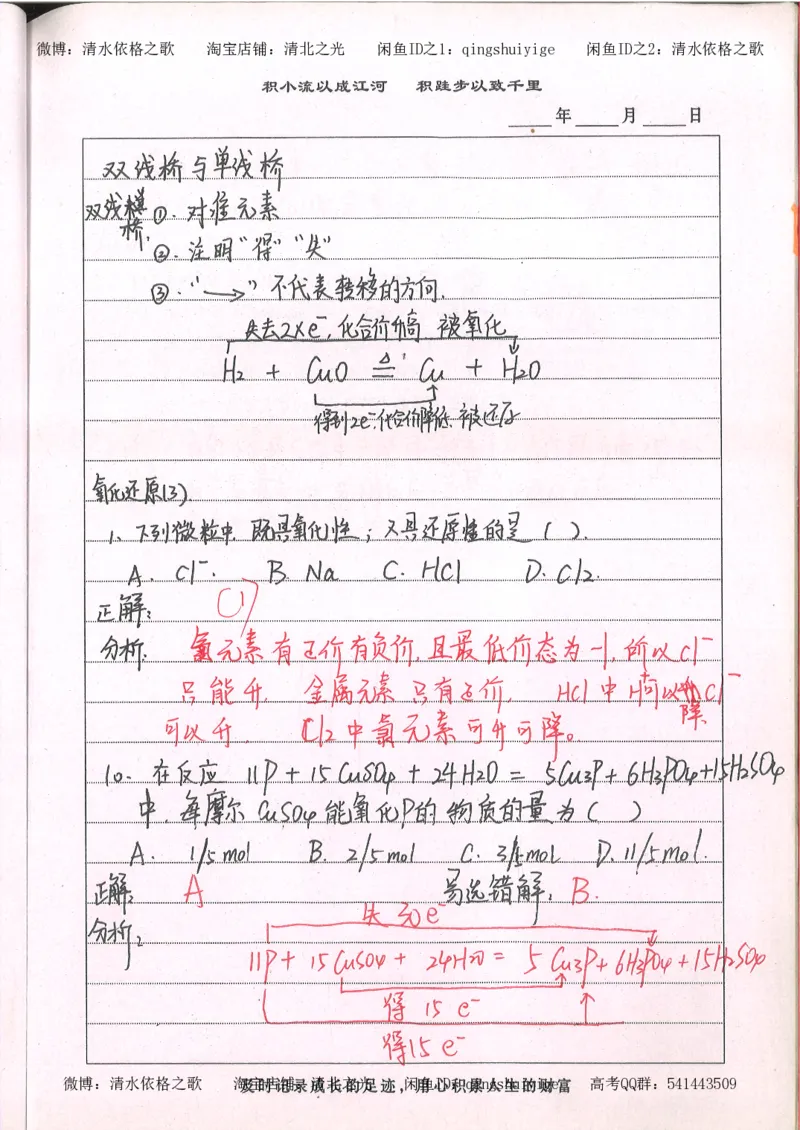 微博：清水依格之歌 淘宝店铺：清北之光 闲鱼ID之1：qingshuiyige 闲鱼ID之2：清水依格之歌
积小流以成江河 积跬步以致千里
年 月 日
双线桥与单线桥
双线桥 ①. 对准元素
②. 注明“得”“失”
③. “→” 不代表转移的方向.
失去2×e⁻, 化合价升高 被氧化
H₂ + CuO ≜ Cu + H₂O
得到2e⁻, 化合价降低, 被还原
氧化还原(3)
1、下列微粒中, 既具氧化性；又具还原性的是（ ）.
A. Cl⁻. B. Na C. HCl D. Cl₂.
正解： C
分析. 氯元素有正价有负价, 且最低价态为-1, 所以Cl⁻
只能升. 金属元素只有正价. HCl中H可以降 Cl⁻
可以升. Cl₂中氯元素可升可降。
10. 在反应 11P + 15CuSO₄ + 24H₂O = 5Cu₃P + 6H₃PO₄ + 15H₂SO₄
中, 每摩尔CuSO₄能氧化P的物质的量为（ ）
A. 1/5mol B. 2/5mol C. 3/5mol D. 11/5mol.
正解： A 易选错解： B.
分析： 失30e⁻
11P + 15CuSO₄ + 24H₂O = 5Cu₃P + 6H₃PO₄ + 15H₂SO₄
得 15 e⁻
得15 e⁻
及时记录成长的足迹，用心积累人生的财富
微博：清水依格之歌 淘宝店铺：清北之光 闲鱼ID：qingshuiyige 高考QQ群：541443509